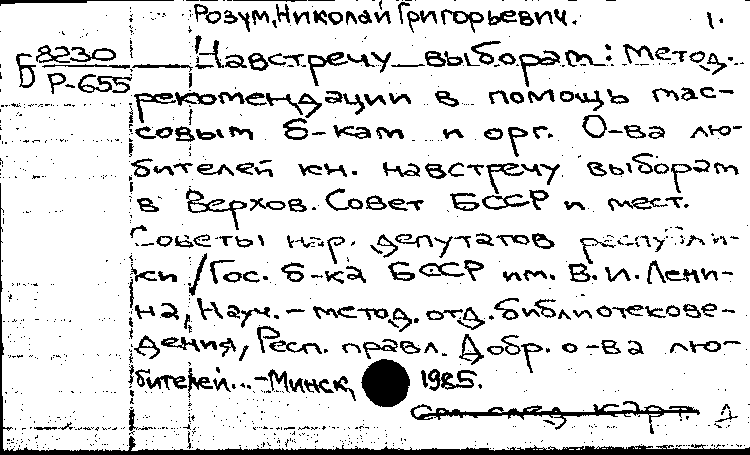 Розум, Николай Григорьевич. 1.
Б 8230
Р-655
Навстречу выборам: Метод.
рекомендации в помощь мас-
совым б-кам и орг. О-ва лю-
бителей кн. навстречу выборам
в Верхов. Совет БССР и мест.
Советы нар. депутатов республи-
ки / Гос. б-ка БССР им. В. И. Лени-
на, Науч.-метод. отд. библиотекове-
дения, Респ. правл. Добр. о-ва лю-
бителей...-Минск, 1985.
См. след. карт.